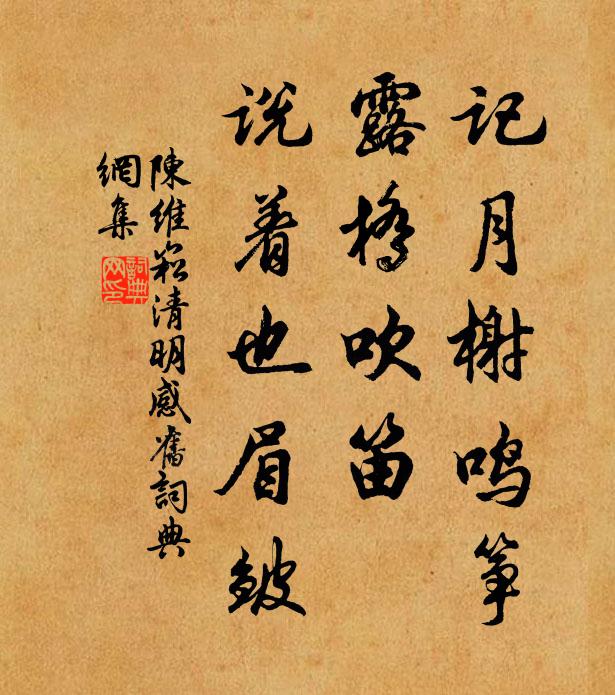 记月榭鸣筝
露桥吹笛
说着也眉皱
陳維崧清明感舊詞典
網集
詞典
网印